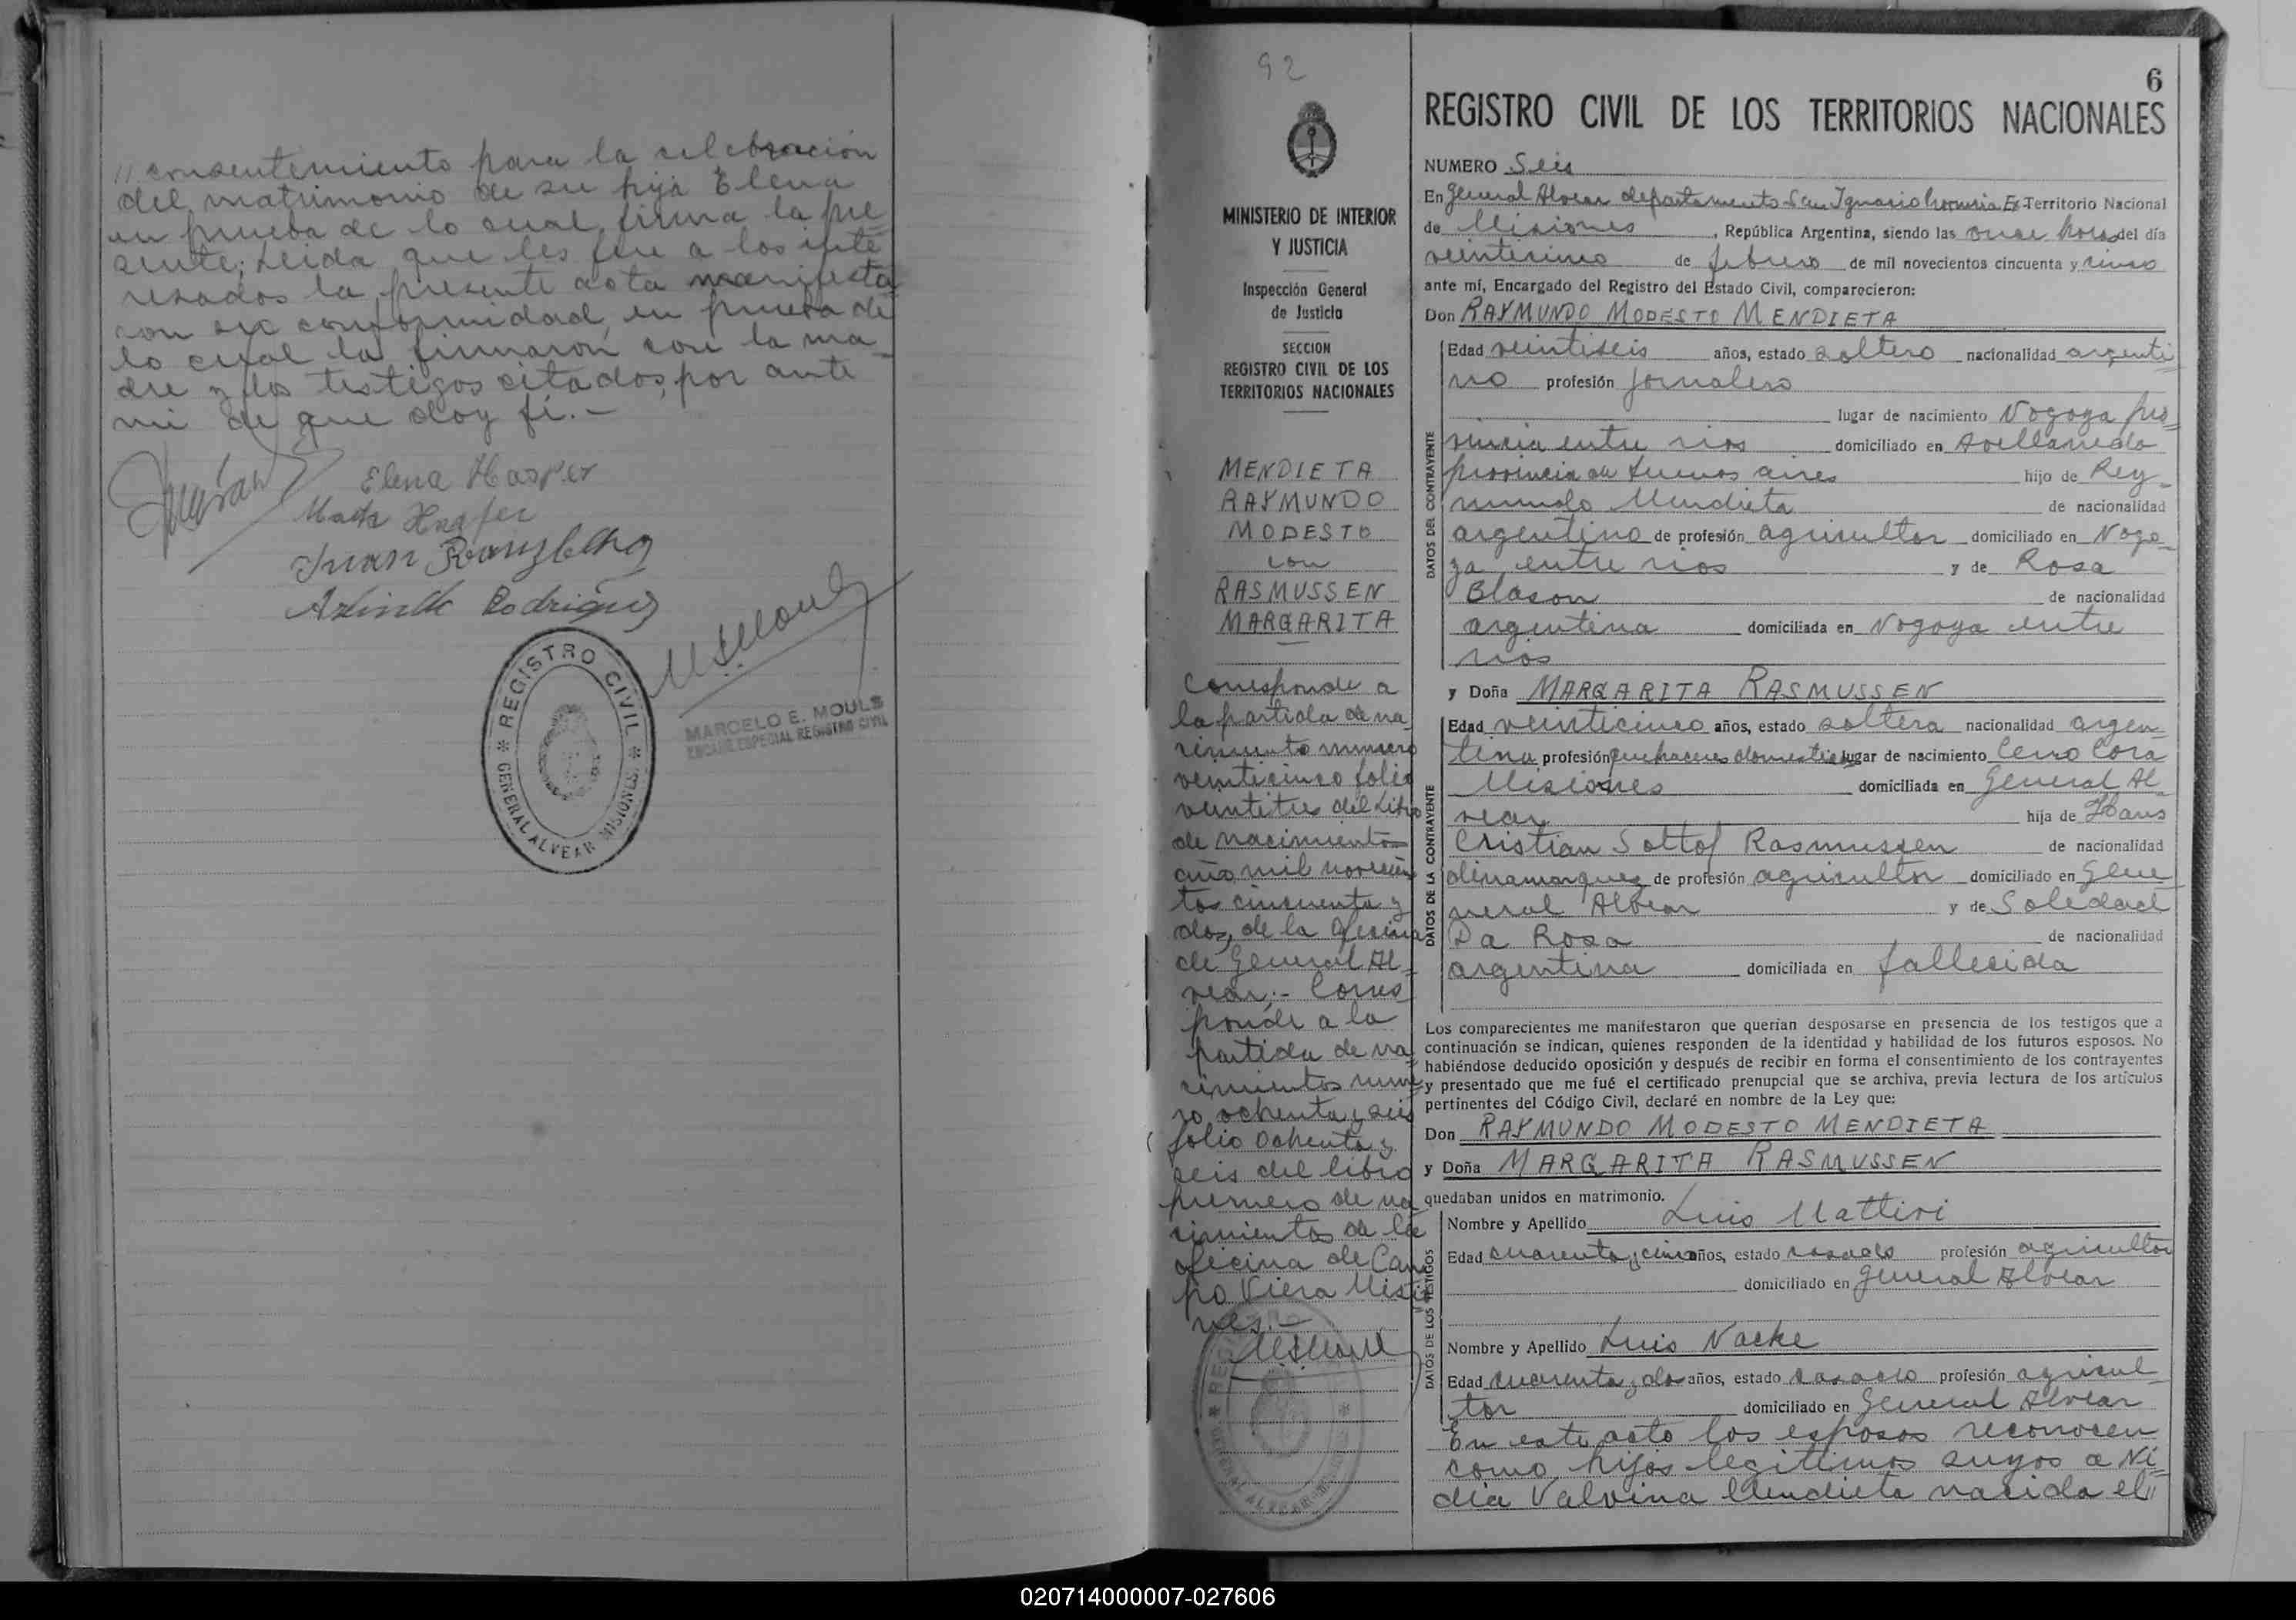 // consentemiento para la celebración
del matrimonio de su hija Elena
en prueba de lo cual firma la pre
sente; Leida que les fue a los inte
resados la presente acta manifesta
ron su conformidad, en prueba de
lo cual la firmaron con la ma
dre y los testigos citados, por ante
mi de que doy fé.-
Elena Hasper
Juan
Rodriguez
REGISTRO CIVIL
GENERAL ALVEAR MISIONES
MARCELO E. MOULS
ENCARG. ESPECIAL REGISTRO CIVIL
92
MINISTERIO DE INTERIOR
Y JUSTICIA
Inspección General
de Justicia
SECCION
REGISTRO CIVIL DE LOS
TERRITORIOS NACIONALES
MENDIETA
RAYMUNDO
MODESTO
con
RASMUSSEN
MARGARITA
Corresponde a
la partida de na
cimiento numero
veinticinco folio
veintitres del Libro
de nacimientos
año mil novecien
tos cincuenta y
dos, de la oficina
de General Al
vear;- Corres
ponde a la
partida de na
cimientos nume
ro ochenta y seis
folio ochenta y
seis del libro
primero de na
cimientos de la
oficina de Cam
po Viera Misio
nes.-
6
REGISTRO CIVIL DE LOS TERRITORIOS NACIONALES
NUMERO Seis
En General Alvear departamento San Ignacio Provincia Ex Territorio Nacional
de Misiones, República Argentina, siendo las once horas del día
veinticinco de febrero de mil novecientos cincuenta y cinco
ante mí, Encargado del Registro del Estado Civil, comparecieron:
Don RAYMUNDO MODESTO MENDIETA
DATOS DEL CONTRAYENTE
Edad veintiseis años, estado soltero nacionalidad argenti
no profesión jornalero
lugar de nacimiento Nogoya pro
vincia entre rios domiciliado en Avellaneda
provincia de buenos aires hijo de Rey
mundo Mendieta de nacionalidad
argentino de profesión agricultor domiciliado en Nogo
ya entre rios y de Rosa
Blason de nacionalidad
argentina domiciliada en Nogoya entre
rios
y Doña MARGARITA RASMUSSEN
DATOS DE LA CONTRAYENTE
Edad veinticinco años, estado soltera nacionalidad argen
tina profesión quehaceres domesticos lugar de nacimiento Cerro Cora
Misiones domiciliada en General Al
vear hija de Hans
Cristian Soltof Rasmussen de nacionalidad
dinamarquez de profesión agricultor domiciliado en Gene
neral Alvear y de Soledad
Da Rosa de nacionalidad
argentina domiciliada en fallecida
Los comparecientes me manifestaron que querían desposarse en presencia de los testigos que a
continuación se indican, quienes responden de la identidad y habilidad de los futuros esposos. No
habiéndose deducido oposición y después de recibir en forma el consentimiento de los contrayentes
y presentado que me fué el certificado prenupcial que se archiva, previa lectura de los artículos
pertinentes del Código Civil, declaré en nombre de la Ley que:
Don RAYMUNDO MODESTO MENDIETA
y Doña MARGARITA RASMUSSEN
quedaban unidos en matrimonio.
DATOS DE LOS TESTIGOS
Nombre y Apellido Luis Mattivi
Edad cuarenta y cinco años, estado casado profesión agricultor
domiciliado en General Alvear
Nombre y Apellido Luis Nacke
Edad cuarenta y dos años, estado casado profesión agricul
tor domiciliado en General Alvear
En este acto los esposos reconocen
como hijos legitimos suyos a Ni
dia Valvina Mendieta nacida el//
020714000007-027606